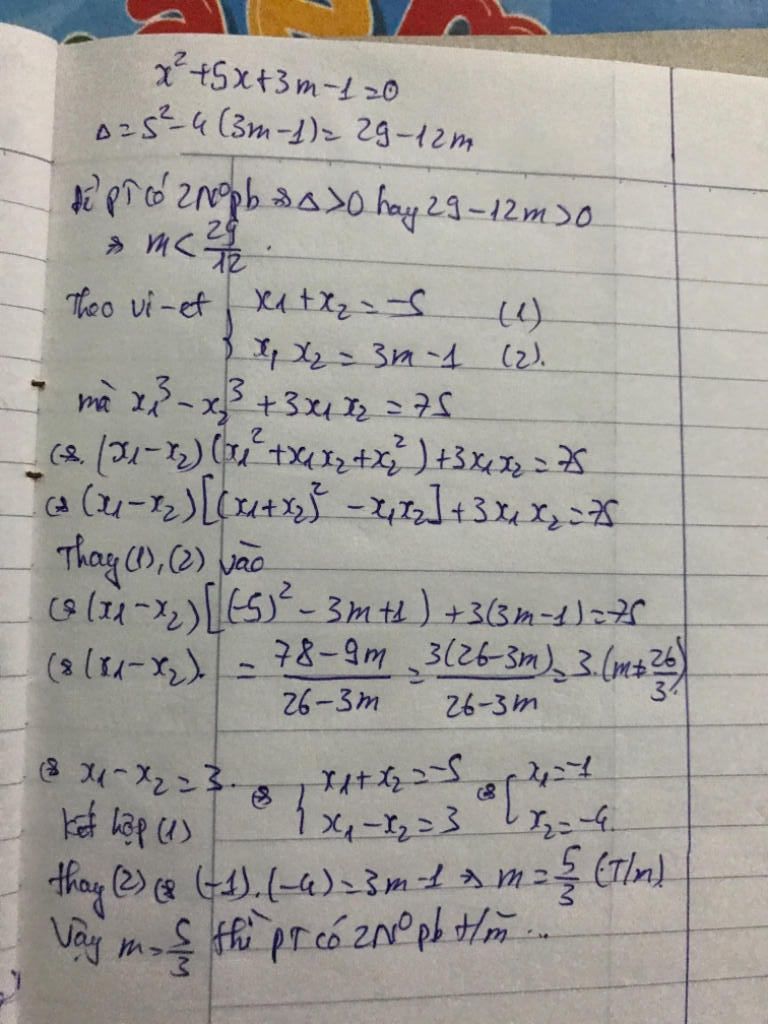 x² + 5x + 3m - 1 = 0
Δ = 5² - 4(3m - 1) = 29 - 12m
Để PT có 2N⁰ pb ⇒ Δ > 0 hay 29 - 12m > 0
⇒ m < 29/12.
Theo vi-et { x₁ + x₂ = -5 (1)
x₁ x₂ = 3m - 1 (2).
mà x₁³ - x₂³ + 3x₁x₂ = 75
⇔ (x₁ - x₂)(x₁² + x₁x₂ + x₂²) + 3x₁x₂ = 75
⇔ (x₁ - x₂)[(x₁ + x₂)² - x₁x₂] + 3x₁x₂ = 75
Thay (1), (2) vào
⇔ (x₁ - x₂)[(-5)² - 3m + 1) + 3(3m - 1) = 75
⇔ (x₁ - x₂). = (78 - 9m)/(26 - 3m) = 3(26 - 3m)/(26 - 3m) = 3. (m ≠ 26/3)
⇔ x₁ - x₂ = 3.
Kết hợp (1) ⇔ { x₁ + x₂ = -5 ⇔ [ x₁ = -1
x₁ - x₂ = 3 x₂ = -4.
thay (2) ⇔ (-1).(-4) = 3m - 1 ⇒ m = 5/3 (T/m)
Vậy m = 5/3 thì PT có 2N⁰ pb t/m ...